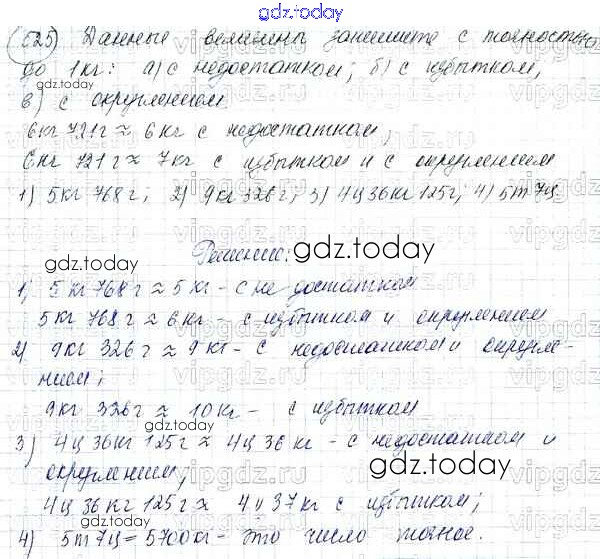 gdz.today
525) Данные величины запишите с точностью
до 1кг: а) с недостатком; б) с избытком,
в) с округлением
6кг 721г ≈ 6кг с недостатком,
6кг 721г ≈ 7кг с избытком и с округлением
1) 5кг 768г; 2) 9кг 326г; 3) 4ц 36кг 125г; 4) 5т 7ц
Решение: gdz.today
gdz.today
1) 5кг 768г ≈ 5кг - с недостатком
5кг 768г ≈ 6кг - с избытком и округлением
2) 9кг 326г ≈ 9кг - с недостатком и округле-
нием;
9кг 326г ≈ 10кг - с избытком
3) 4ц 36кг 125г ≈ 4ц 36кг - с недостатком и
округлением; gdz.today
4ц 36кг 125г ≈ 4ц 37кг с избытком;
gdz.today
4) 5т 7ц = 5700кг - это число точное.